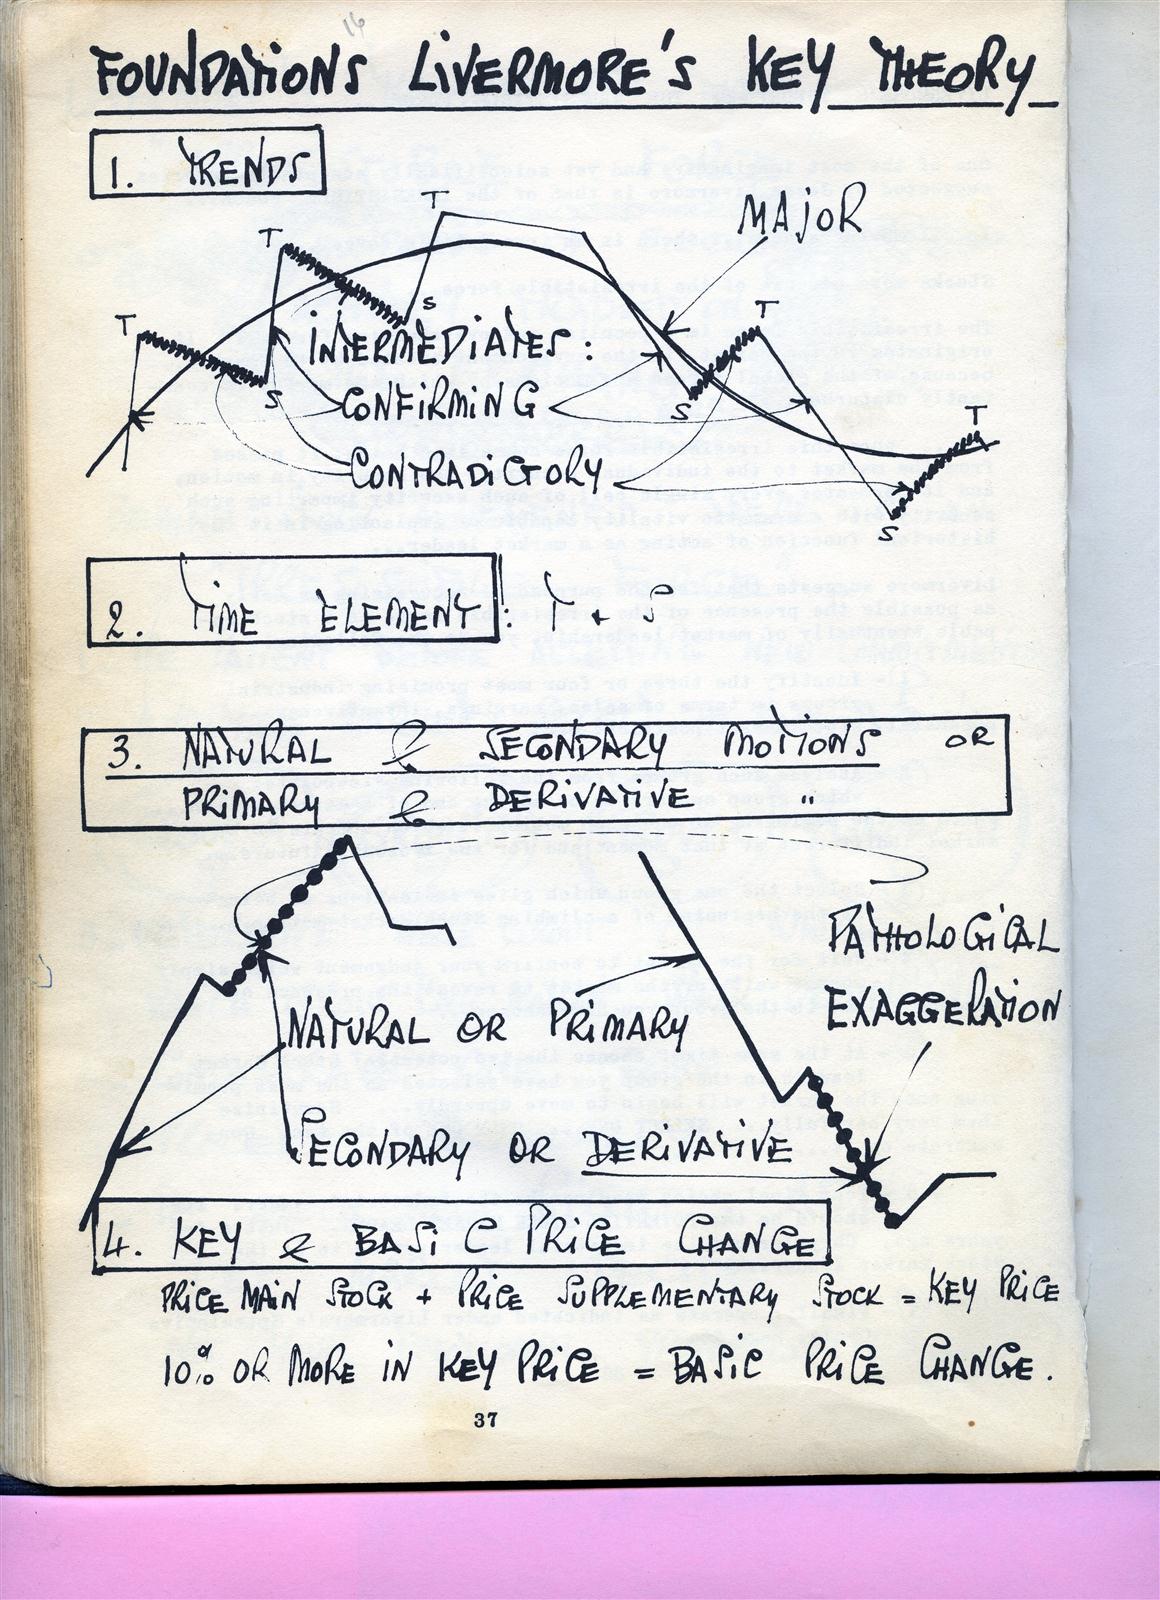 16
FOUNDATIONS LIVERMORE'S KEY THEORY
1. TRENDS
T
MAJOR
T
S
T
T
INTERMEDIATES:
S
CONFIRMING
S
T
CONTRADICTORY
S
2. TIME ELEMENT: T & S
3. NATURAL & SECONDARY MOTIONS OR
PRIMARY & DERIVATIVE "
PATHOLOGICAL
EXAGGERATION
NATURAL OR PRIMARY
SECONDARY OR DERIVATIVE
4. KEY & BASIC PRICE CHANGE
PRICE MAIN STOCK + PRICE SUPPLEMENTARY STOCK = KEY PRICE
10% OR MORE IN KEY PRICE = BASIC PRICE CHANGE.
37